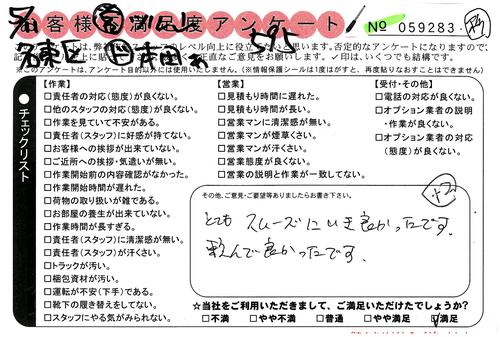 お客様満足度アンケート
№ 059283
592
名東区
※このアンケートは、アンケート目的以外には使用いたしません。(※情報保護シールは1度はがすと、再度貼りなおすことはできません。)
●チェックリスト
【作業】
□責任者の対応(態度)が良くない。
□他のスタッフの対応(態度)が良くない。
□作業を見ていて不安がある。
□責任者(スタッフ)に好感が持てない。
□お客様への挨拶が出来ていない。
□ご近所への挨拶・気遣いが無い。
□作業開始前の内容確認がなかった。
□作業開始時間が遅れた。
□荷物の取り扱いが雑である。
□お部屋の養生が出来ていない。
□作業時間が長すぎる。
□責任者(スタッフ)に清潔感が無い。
□責任者(スタッフ)が汗くさい。
□トラックが汚い。
□梱包資材が汚い。
□運転が不安(下手)である。
□靴下の履き替えをしてない。
□スタッフにやる気がみられない。
【営業】
□見積もり時間に遅れた。
□見積もり時間が長い。
□営業マンに清潔感が無い。
□営業マンが煙草くさい。
□営業マンが汗くさい。
□営業態度が良くない。
□営業の説明と作業が一致してない。
【受付・その他】
□電話の対応が良くない。
□オプション業者の説明
・作業が良くない。
□オプション業者の対応
(態度)が良くない。
その他、ご意見・ご要望等ありましたらお書き下さい。
+2
とても スムーズにいき良かったです。
頼んで良かったです。
☆当社をご利用いただきまして、ご満足いただけたでしょうか?
□不満 □やや不満 □普通 □やや満足 ☑満足